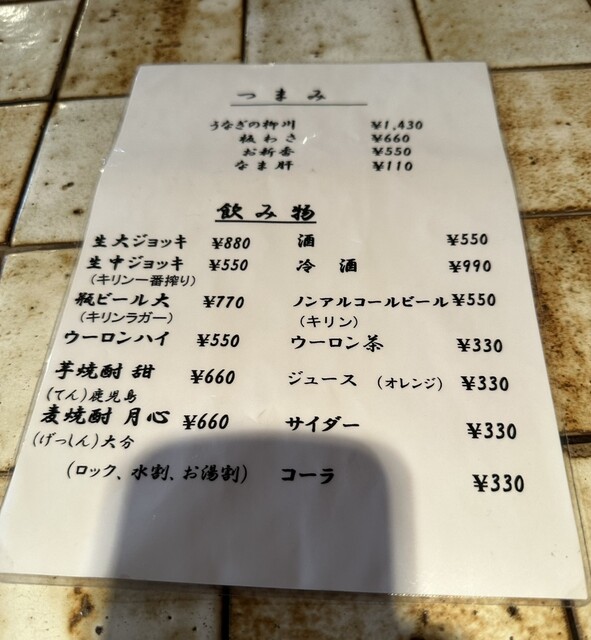 つまみ
うなぎの柳川 ¥1,430
板わさ ¥660
お新香 ¥550
なま肝 ¥110
飲み物
生大ジョッキ ¥880 酒 ¥550
生中ジョッキ ¥550 冷酒 ¥990
(キリン一番搾り)
瓶ビール大 ¥770 ノンアルコールビール ¥550
(キリンラガー) (キリン)
ウーロンハイ ¥550 ウーロン茶 ¥330
芋焼酎 甜 ¥660 ジュース (オレンジ) ¥330
(てん)鹿児島
麦焼酎 月心 ¥660 サイダー ¥330
(げっしん)大分
(ロック、水割、お湯割) コーラ ¥330